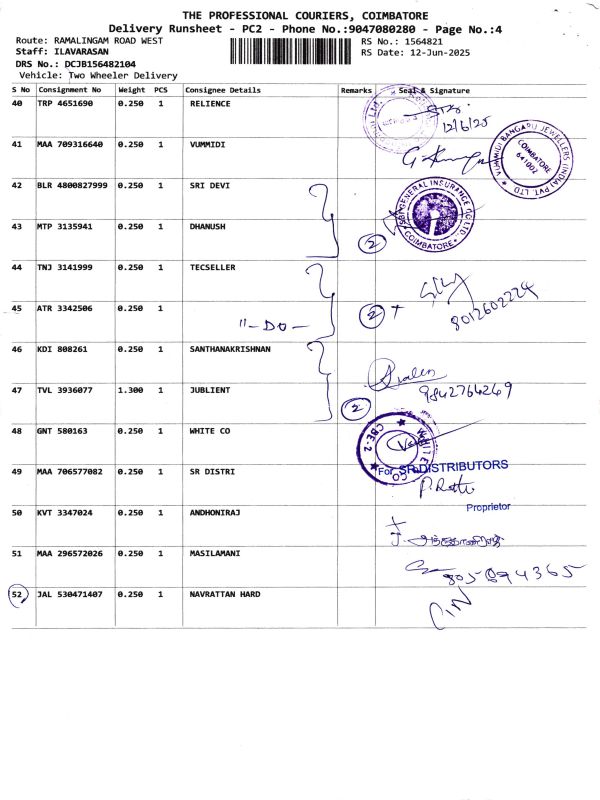 THE PROFESSIONAL COURIERS, COIMBATORE
Delivery Runsheet - PC2 - Phone No.:9047080280 - Page No.:4
Route: RAMALINGAM ROAD WEST
RS No.: 1564821
Staff: ILAVARASAN
RS Date: 12-Jun-2025
DRS No.: DCJB156482104
Vehicle: Two Wheeler Delivery
S No Consignment No Weight PCS Consignee Details Remarks Seal & Signature
40 TRP 4651690 0.250 1 RELIENCE
12/6/25
41 MAA 709316640 0.250 1 VUMMIDI
VUMMIDI BANGARU JEWELLERS (INDIA) PVT. LTD
COIMBATORE 641002
42 BLR 4800827999 0.250 1 SRI DEVI
SBI GENERAL INSURANCE CO. LTD. COIMBATORE
43 MTP 3135941 0.250 1 DHANUSH 2
44 TNJ 3141999 0.250 1 TECSELLER
45 ATR 3342506 0.250 1 "-DO- 2
8012602224
46 KDI 808261 0.250 1 SANTHANAKRISHNAN
47 TVL 3936077 1.300 1 JUBLIENT 2
9842764269
48 GNT 580163 0.250 1 WHITE CO
WHITE CO CBE-2
49 MAA 706577082 0.250 1 SR DISTRI
For SR DISTRIBUTORS
Proprietor
50 KVT 3347024 0.250 1 ANDHONIRAJ
51 MAA 296572026 0.250 1 MASILAMANI
52 JAL 530471407 0.250 1 NAVRATTAN HARD